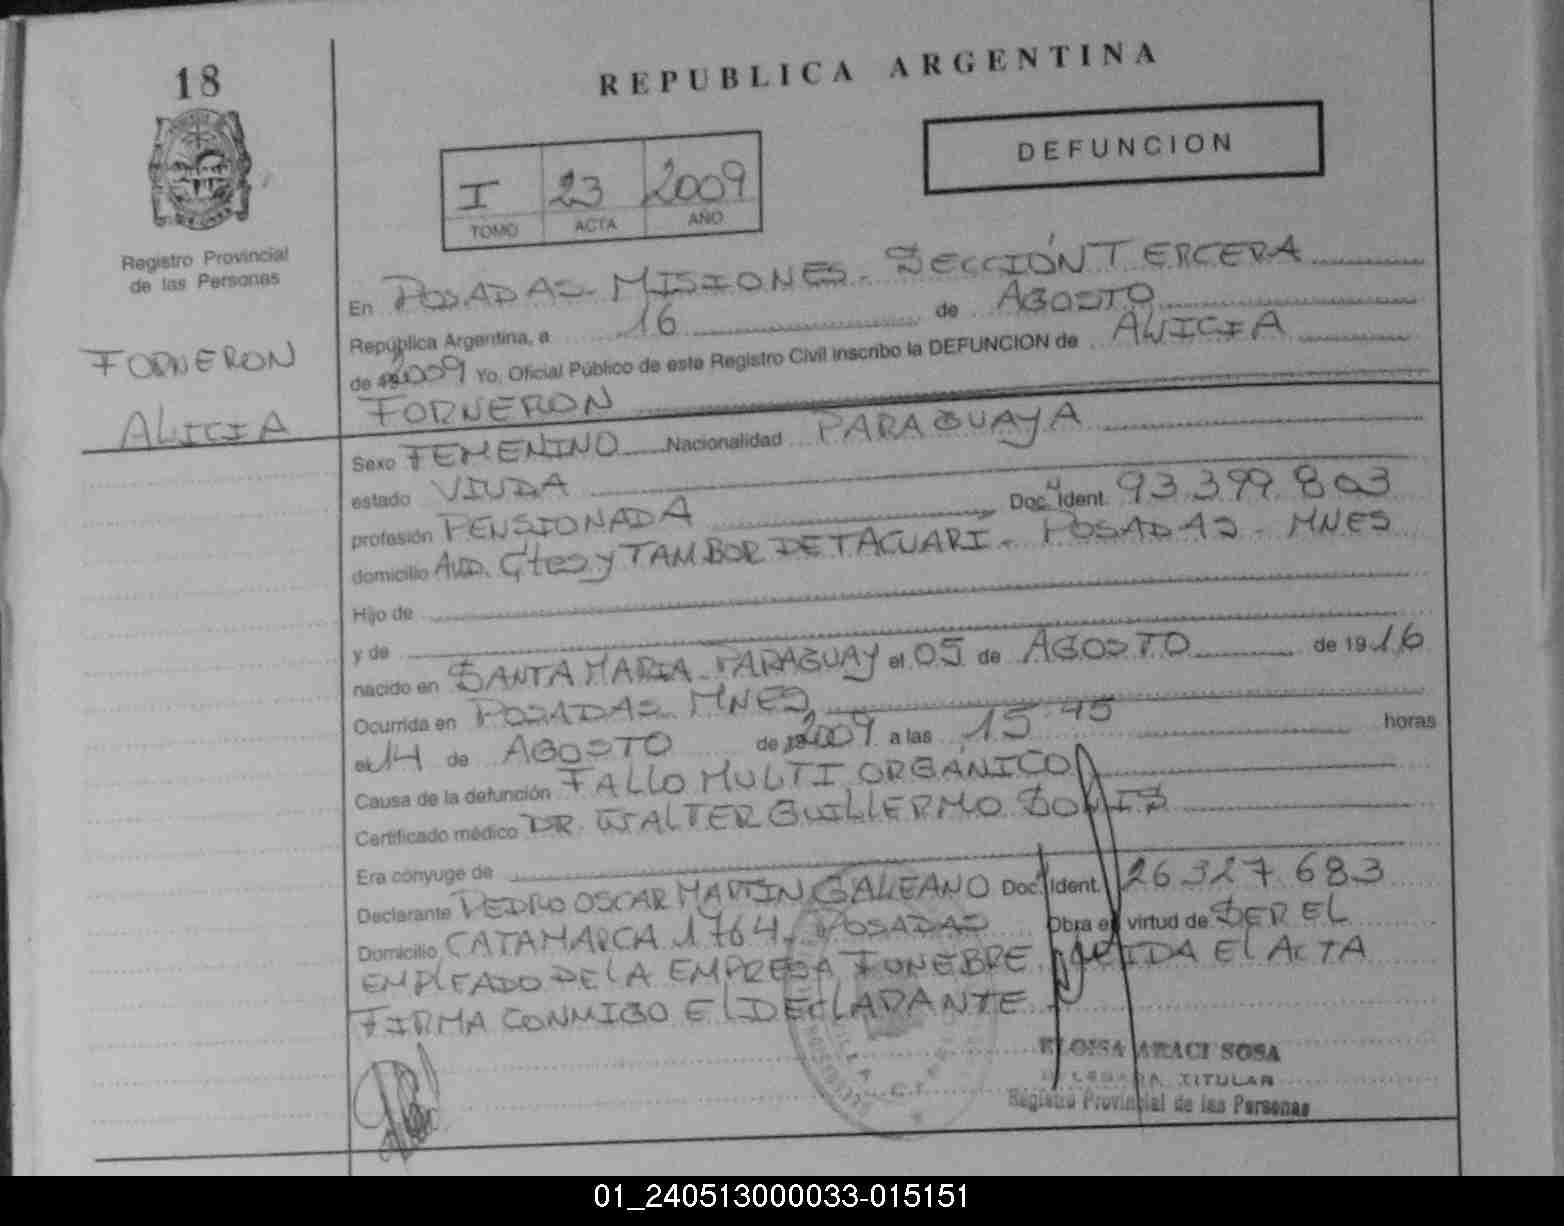 18
REPUBLICA ARGENTINA
DEFUNCION
I 23 2009
TOMO ACTA AÑO
Registro Provincial
de las Personas
FORNERON
ALICIA
En POSADAS - MISIONES - SECCIÓN TERCERA
República Argentina, a 16 de AGOSTO
de 2009 Yo, Oficial Público de este Registro Civil inscribo la DEFUNCION de ALICIA
FORNERON
Sexo FEMENINO Nacionalidad PARAGUAYA
estado VIUDA
profesión PENSIONADA Doc. Ident. 93.399.803
domicilio AVD. Ctes y TAMBOR DE TACUARI - POSADAS - MNES
Hijo de
y de
nacido en SANTA MARIA - PARAGUAY el 05 de AGOSTO de 1916
Ocurrida en POSADAS - MNES
el 14 de AGOSTO de 2009 a las 15:45 horas
Causa de la defunción FALLO MULTI ORGANICO
Certificado médico DR. WALTER GUILLERMO
Era cónyuge de
Declarante PEDRO OSCAR MARTIN GALEANO Doc. Ident. 26.327.683
Domicilio CATAMARCA 1764 - POSADAS Obra en virtud de SER EL
EMPLEADO DE LA EMPRESA FUNEBRE EL ACTA
FIRMA CONMIGO EL DECLARANTE
ELOISA ARACI SOSA
DELEGADA TITULAR
Registro Provincial de las Personas
01_240513000033-015151